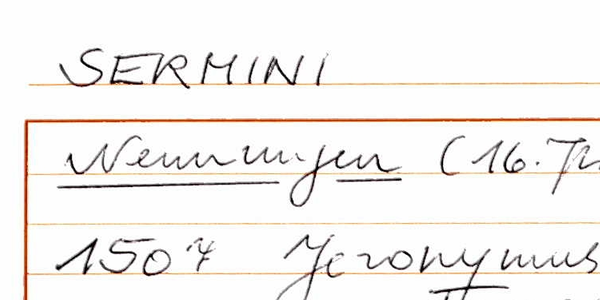 SERMINI
Nennungen (16. Jh
1507 Jeronymus